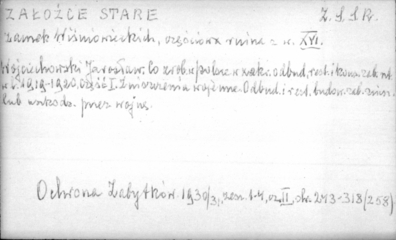 ZAŁOŹCE STARE Z.S.S.R.
Zamek Wiśniowieckich, częściowa ruina z w. XVI.
Wojciechowski Jarosław: Co zrob. w Polsce w zakr. odbud., rest. i konz. zab. szt.
w l. 1919-1920. Część I. Zniszczenia wojenne. Odbud. i rest. budow. zab. zniszcz.
lub uszkodz. przez wojnę.
Ochrona Zabytków 1930/31, zesz. 1-4, cz. II, str. 243-318 (258)